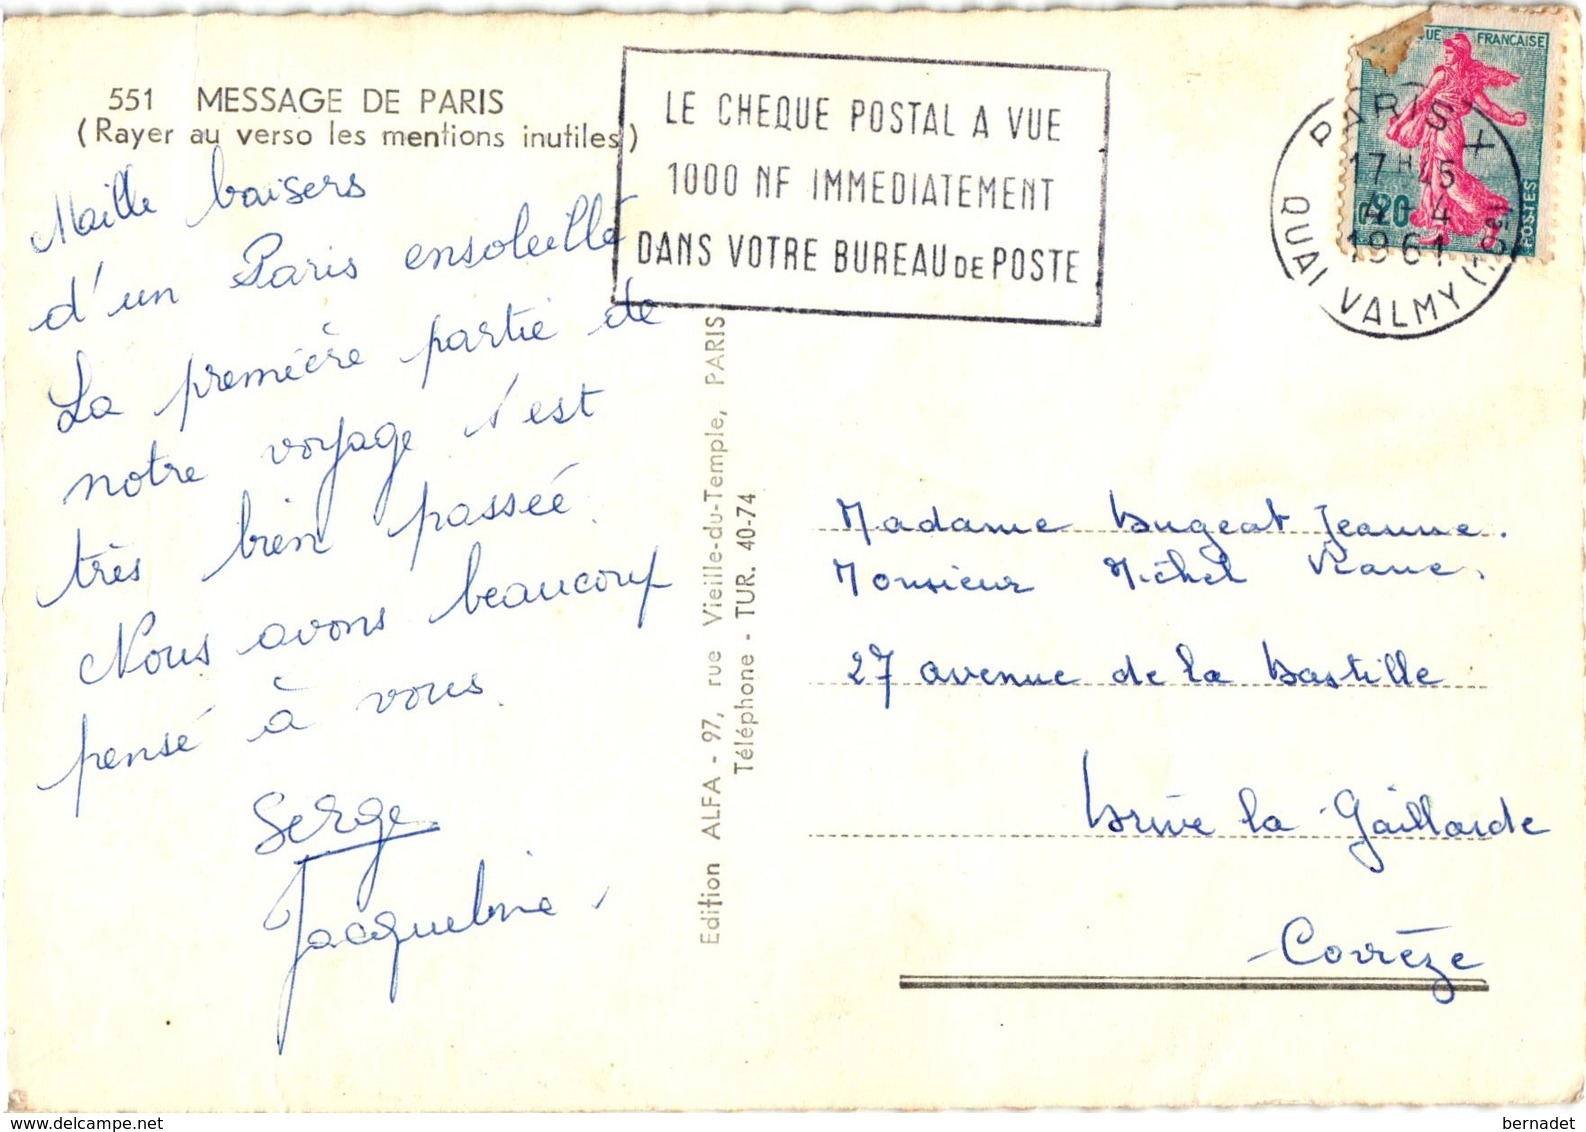 551 MESSAGE DE PARIS
(Rayer au verso les mentions inutiles)
Maille baisers
d'un Paris ensoleillé
La première partie de
notre voyage s'est
très bien passée.
Nous avons beaucoup
pensé à vous.
Serge
Jacqueline.
LE CHEQUE POSTAL A VUE
1000 NF IMMEDIATEMENT
DANS VOTRE BUREAU DE POSTE
FRANÇAISE
POSTES
0,20
PARIS X
17H45
4-4
1961
QUAI VALMY
Edition ALFA - 97, rue Vieille-du-Temple, PARIS
Téléphone - TUR. 40-74
Madame Bugeat Jeanne.
Monsieur Michel
27 avenue de la Bastille
Brive la Gaillarde
Corrèze
delcampe.net
bernadet